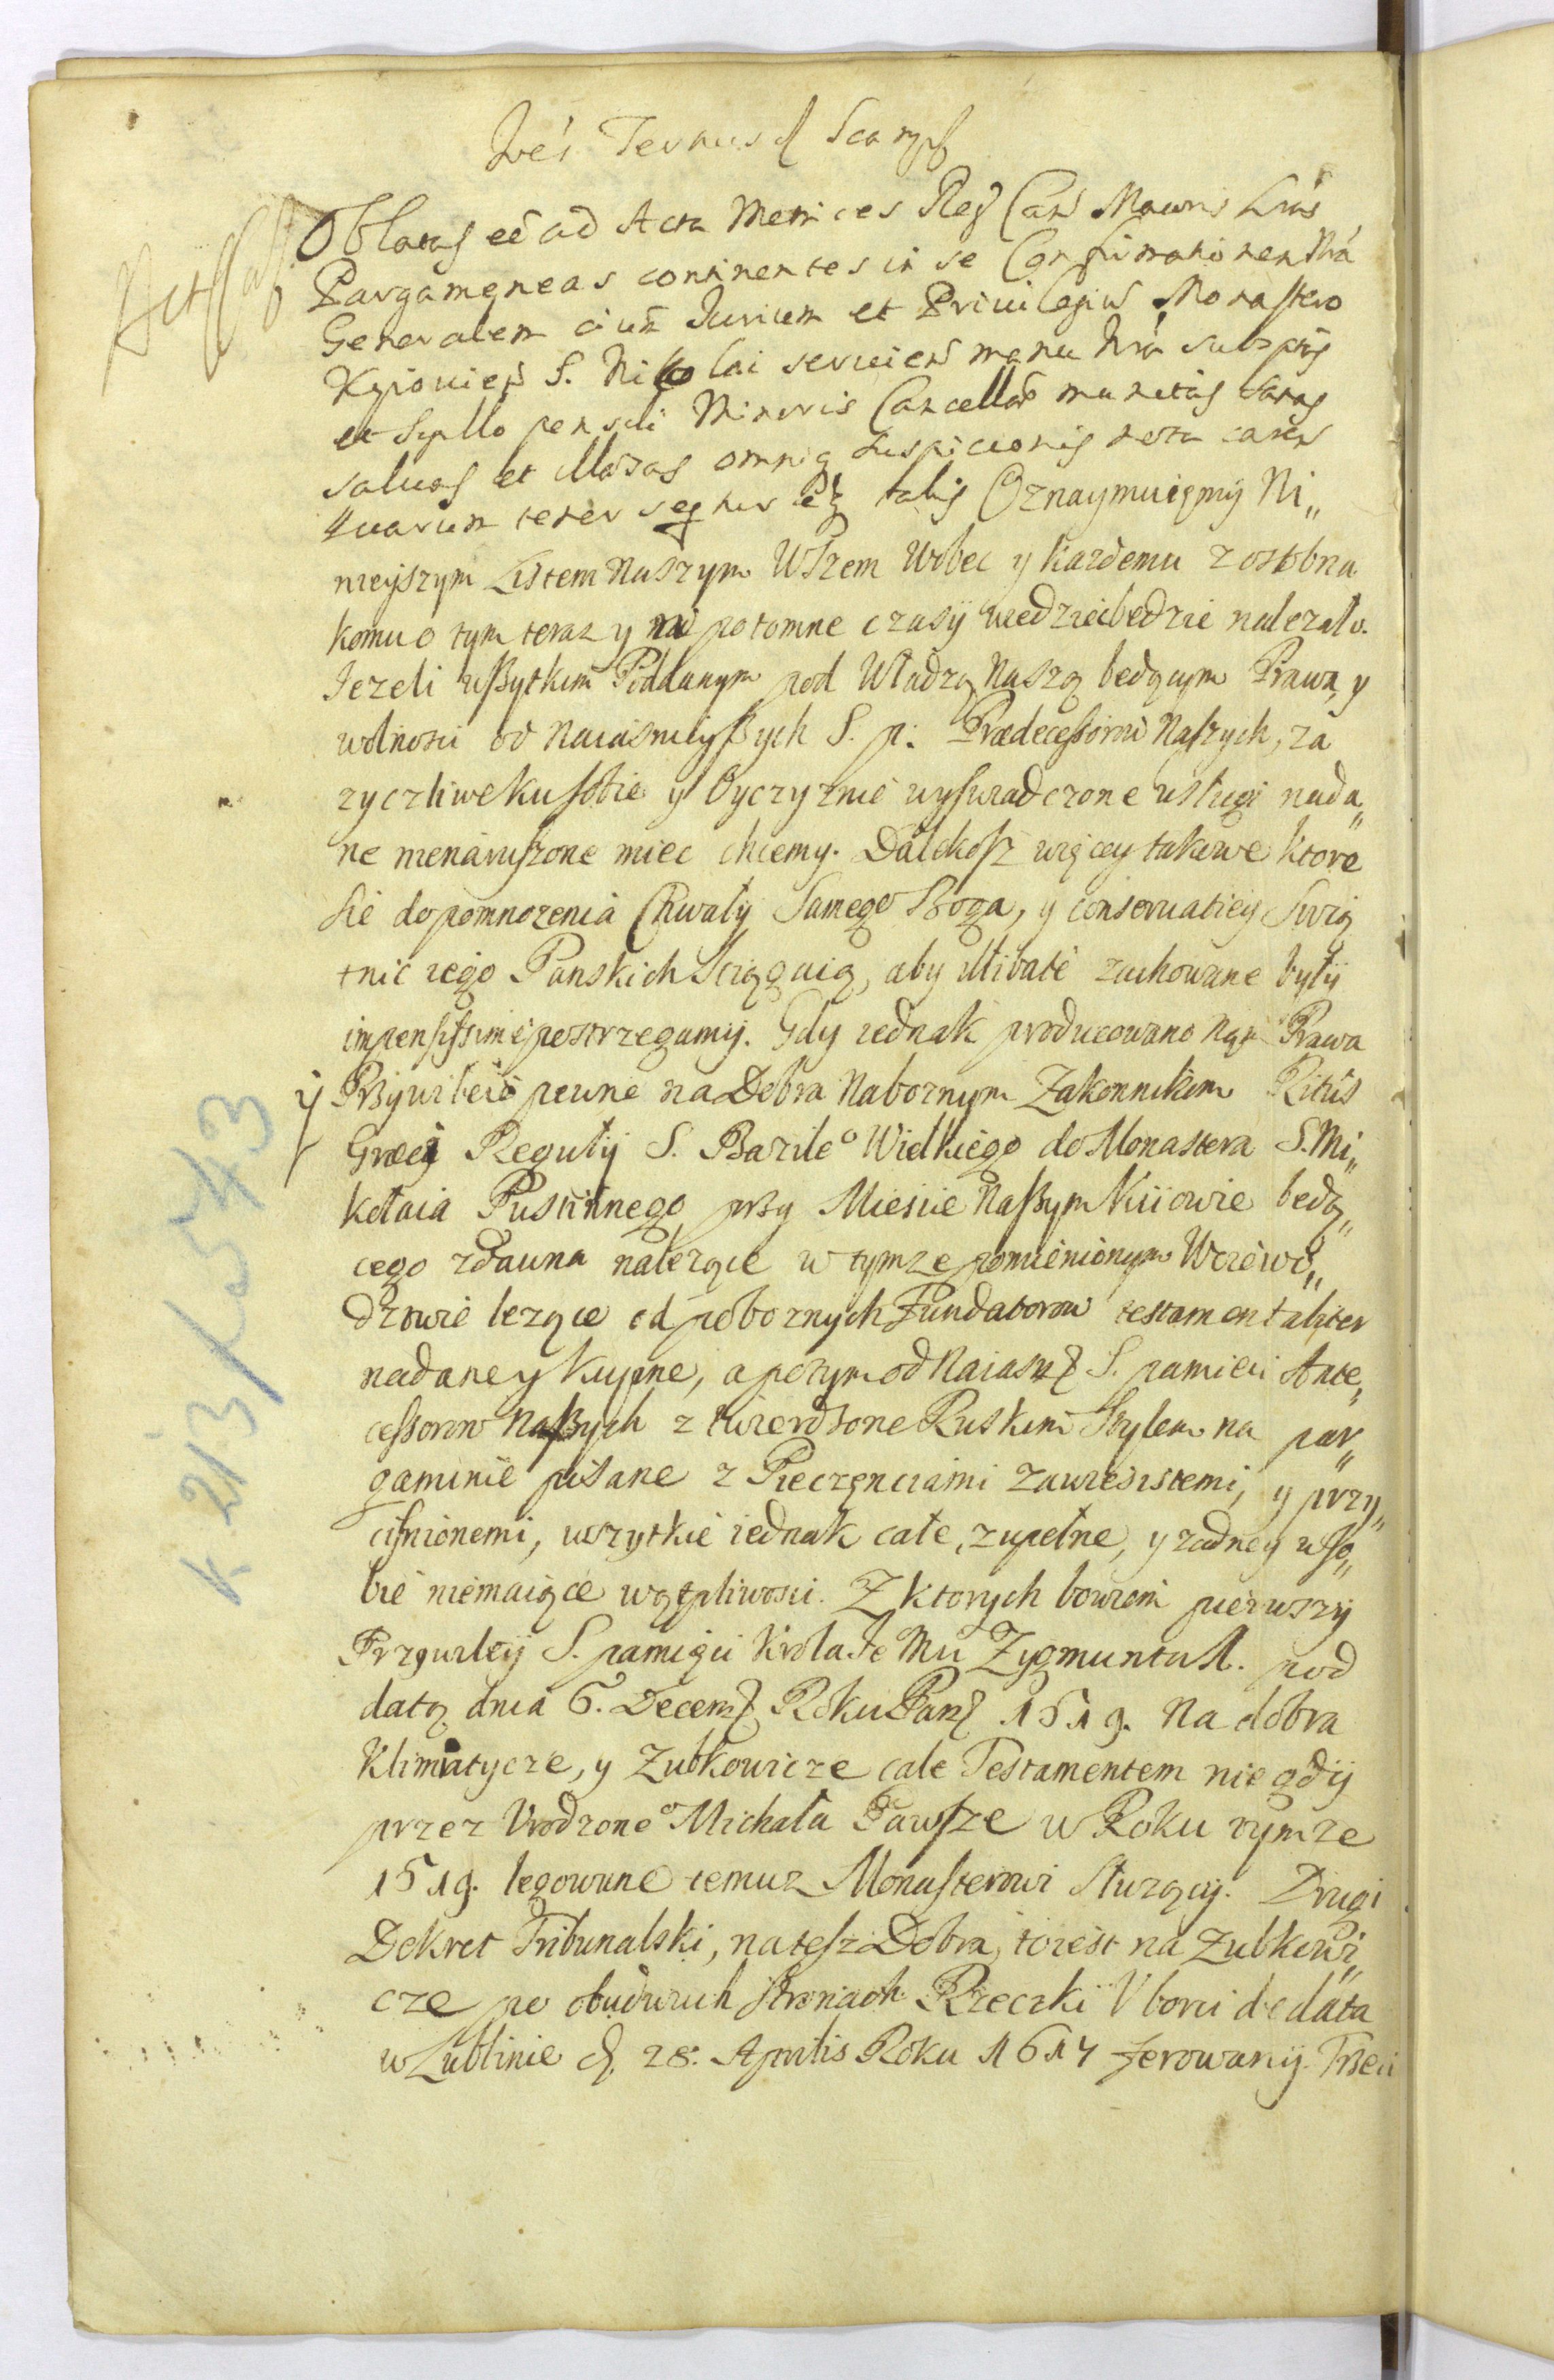 Oblatas eē ad Acta Metrices Reg Can Maioris Lrās
Pargameneas continentes in se Confirmationem Nrā
Generalem oīum Jurium et Privilegiorū Monastero
Kyiovien S. Nikolai servien manu Nrā subsptas
et Sigillo pensili Minoris Cancellar munitas Sanas
salvas et illaesas omniq Suspicionis nota caren
Quarum tenor seqtur est talis Oznaymuięmÿ Ni„
nieyszym Listem Naszym Wszem Wobec y każdemu z osobna
komu o tym teraz y na potomne czasÿ wiedziec będzie nalezało.
Jezeli wßytkim Poddanym pod Władzą Naszą będącym Prawa, y
wolnosci od Naiasnieyßych S. p. Prædecessorow Naszych, za
zyczliwe ku sobie y Oyczyznie wyswiadczone usługi nada„
ne nienaruszone miec chcemy. Dalekosz więcey takowe ktore
sie do pomnozenia Chwały Samego Boga, y conservatiey Swią
tnic iego Panskich sciągaią, aby illibatè zachowane byłÿ
impensissimè postrzegamÿ. Gdy iednak producowano Nąm Prawa
ÿ Prżywileie pewne na Dobra Naboznym Zakonnikom Ritûs
Græci RegułŸ S. Bazile° Wielkiego do Monastera S. Mi„
kołaia Pustinnego przy Miescie Naßym Kiiowie będą„
cego zdawna nalezące w tymze pomienionym Woiewo„
dztwie lezące od poboznych Fundatorow testamentaliter
nadane y kupne, a potym od Naiasń S. pamieci Ante„
cessorow Naßych ztwierdzone Ruskim Stylem na par„
gaminie pisane z Pieczęnciami zawiesistemi, y przy„
cisnionemi, wszytkie iednak całe, zupełne, y zadney w so„
bie niemaiące wątpliwosci. Z ktorych bowiem pierwszÿ
Przywiley S. pamięci Krola Je Mci Zygmunta 1. pod
datą dnia 6. Decem Roku Pan 1519. Na dobra
Klimiatycze, y Zubkowicze całe Testamentem niegdÿ
przez Urodzone° Michała Pawsze w Roku tymze
1519. legowane temuz Monasterowi słuzący. Drugi
Dekret Tribunalski, na tesz Dobra, to iest na Zubkowi„
cze po obudwuch stronach Rzeczki Uborci de data
w Lublinie d. 28. Aprilis Roku 1617 ferowanÿ. Trzeci
K 213/Ko 543